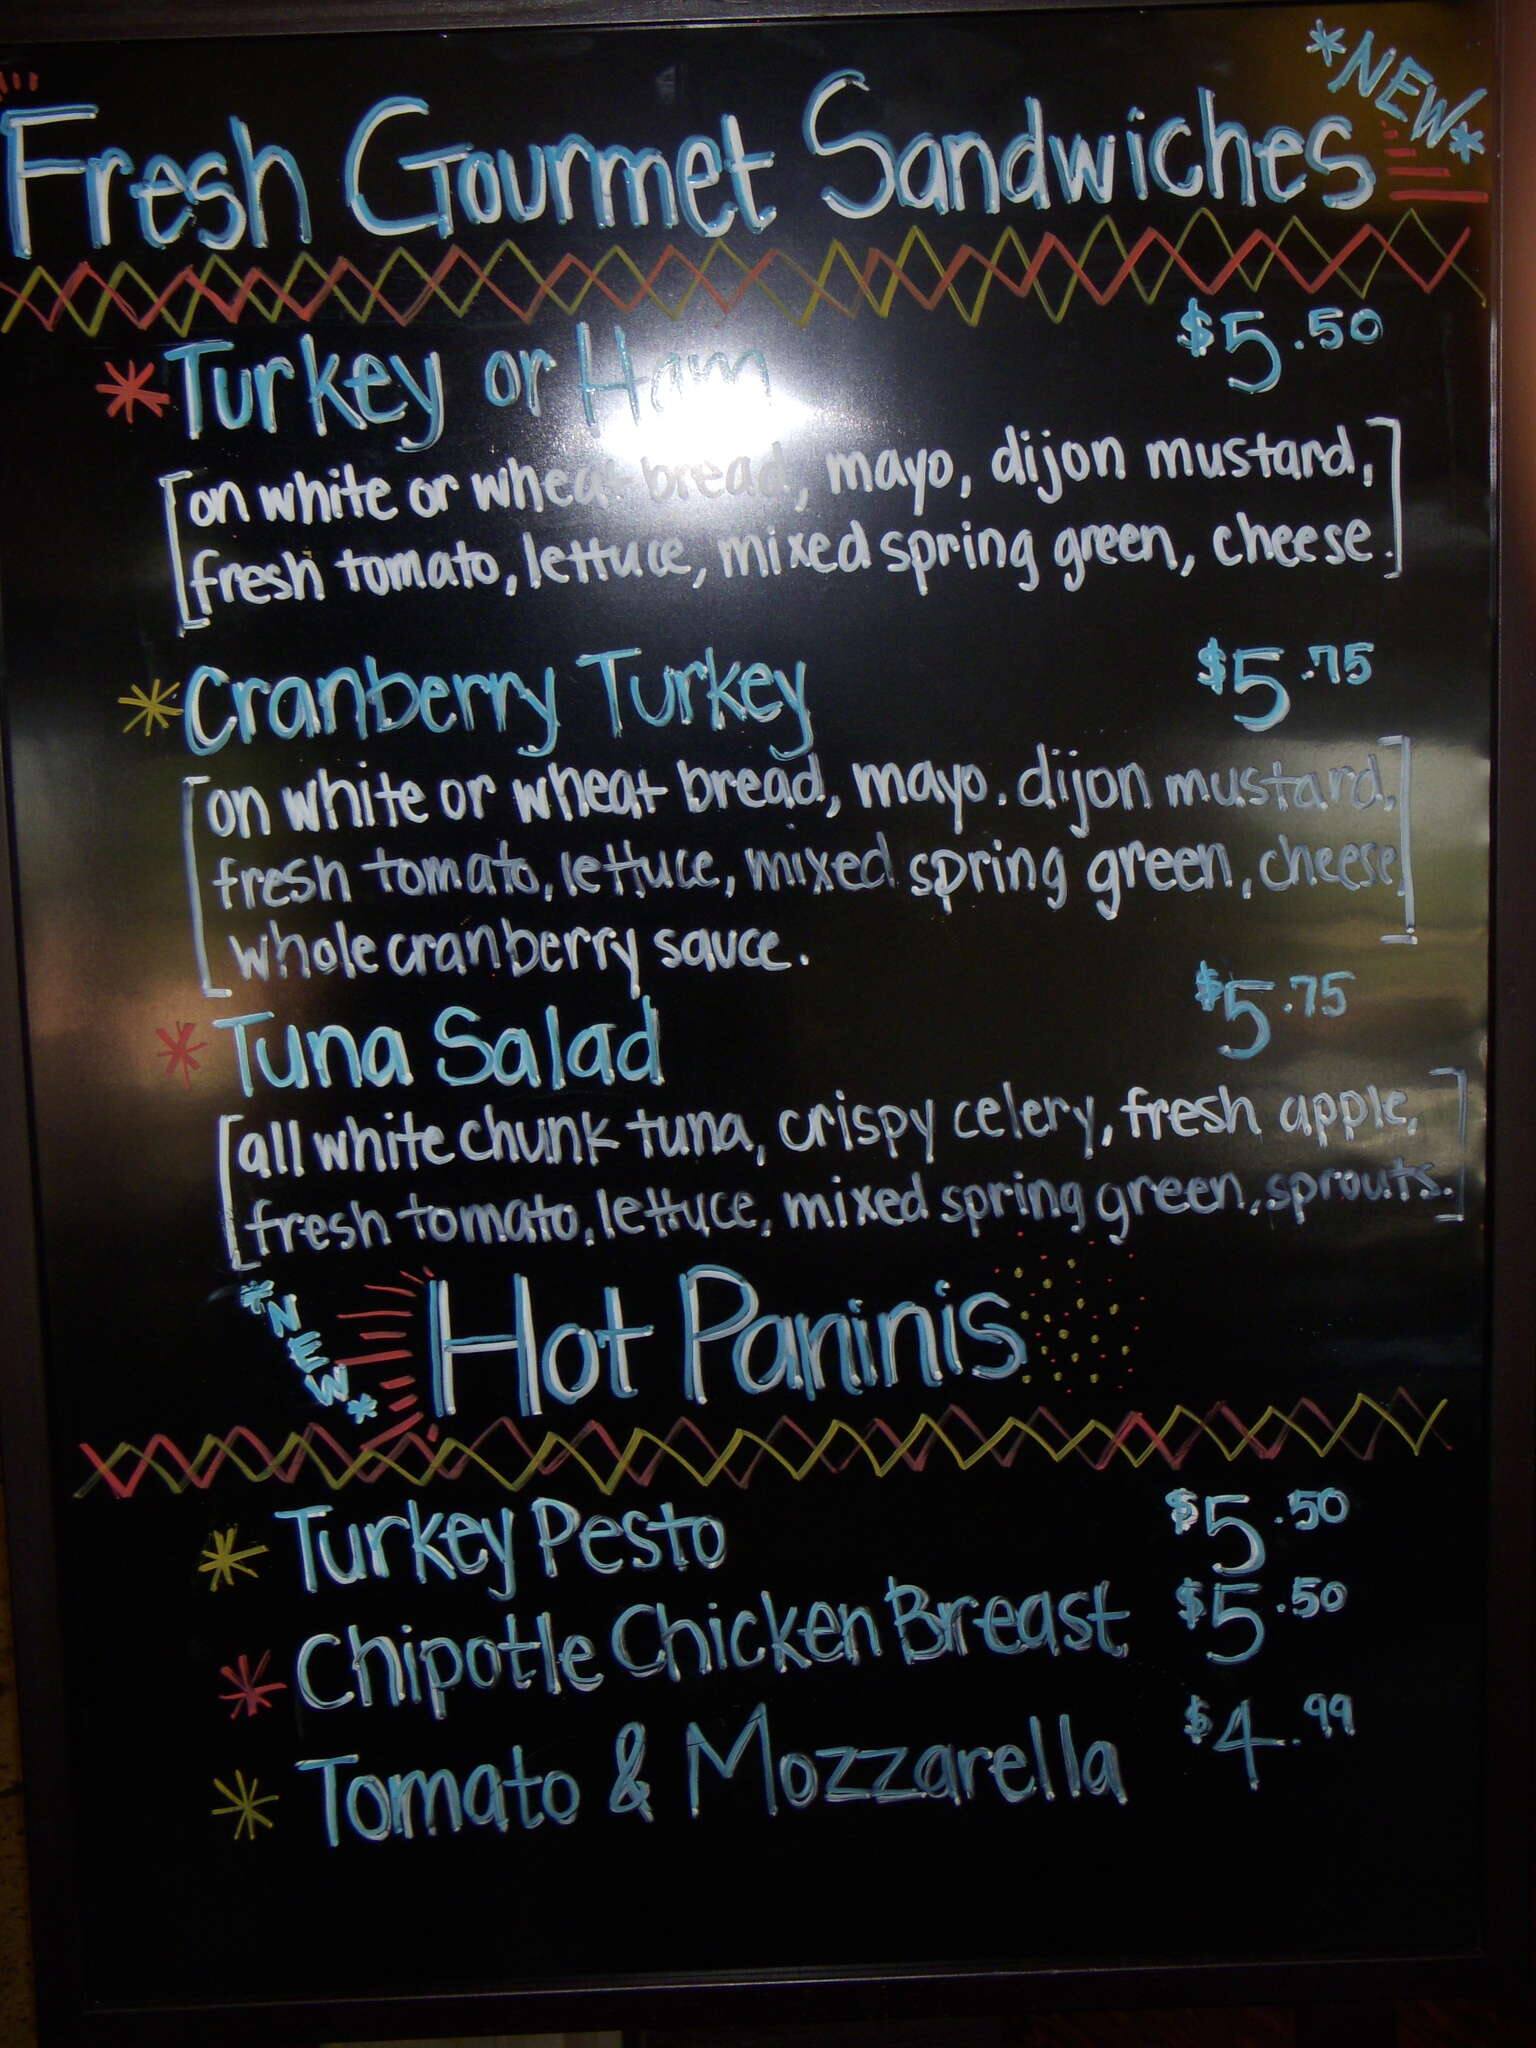 *NEW*
Fresh Gourmet Sandwiches
* Turkey or Ham $5.50
[on white or wheat bread, mayo, dijon mustard,
fresh tomato, lettuce, mixed spring green, cheese.]
* Cranberry Turkey $5.75
[on white or wheat bread, mayo. dijon mustard,
fresh tomato, lettuce, mixed spring green, cheese,
whole cranberry sauce.]
* Tuna Salad $5.75
[all white chunk tuna, crispy celery, fresh apple,
fresh tomato, lettuce, mixed spring green, sprouts.]
*NEW* Hot Paninis
* Turkey Pesto $5.50
* Chipotle Chicken Breast $5.50
* Tomato & Mozzarella $4.99